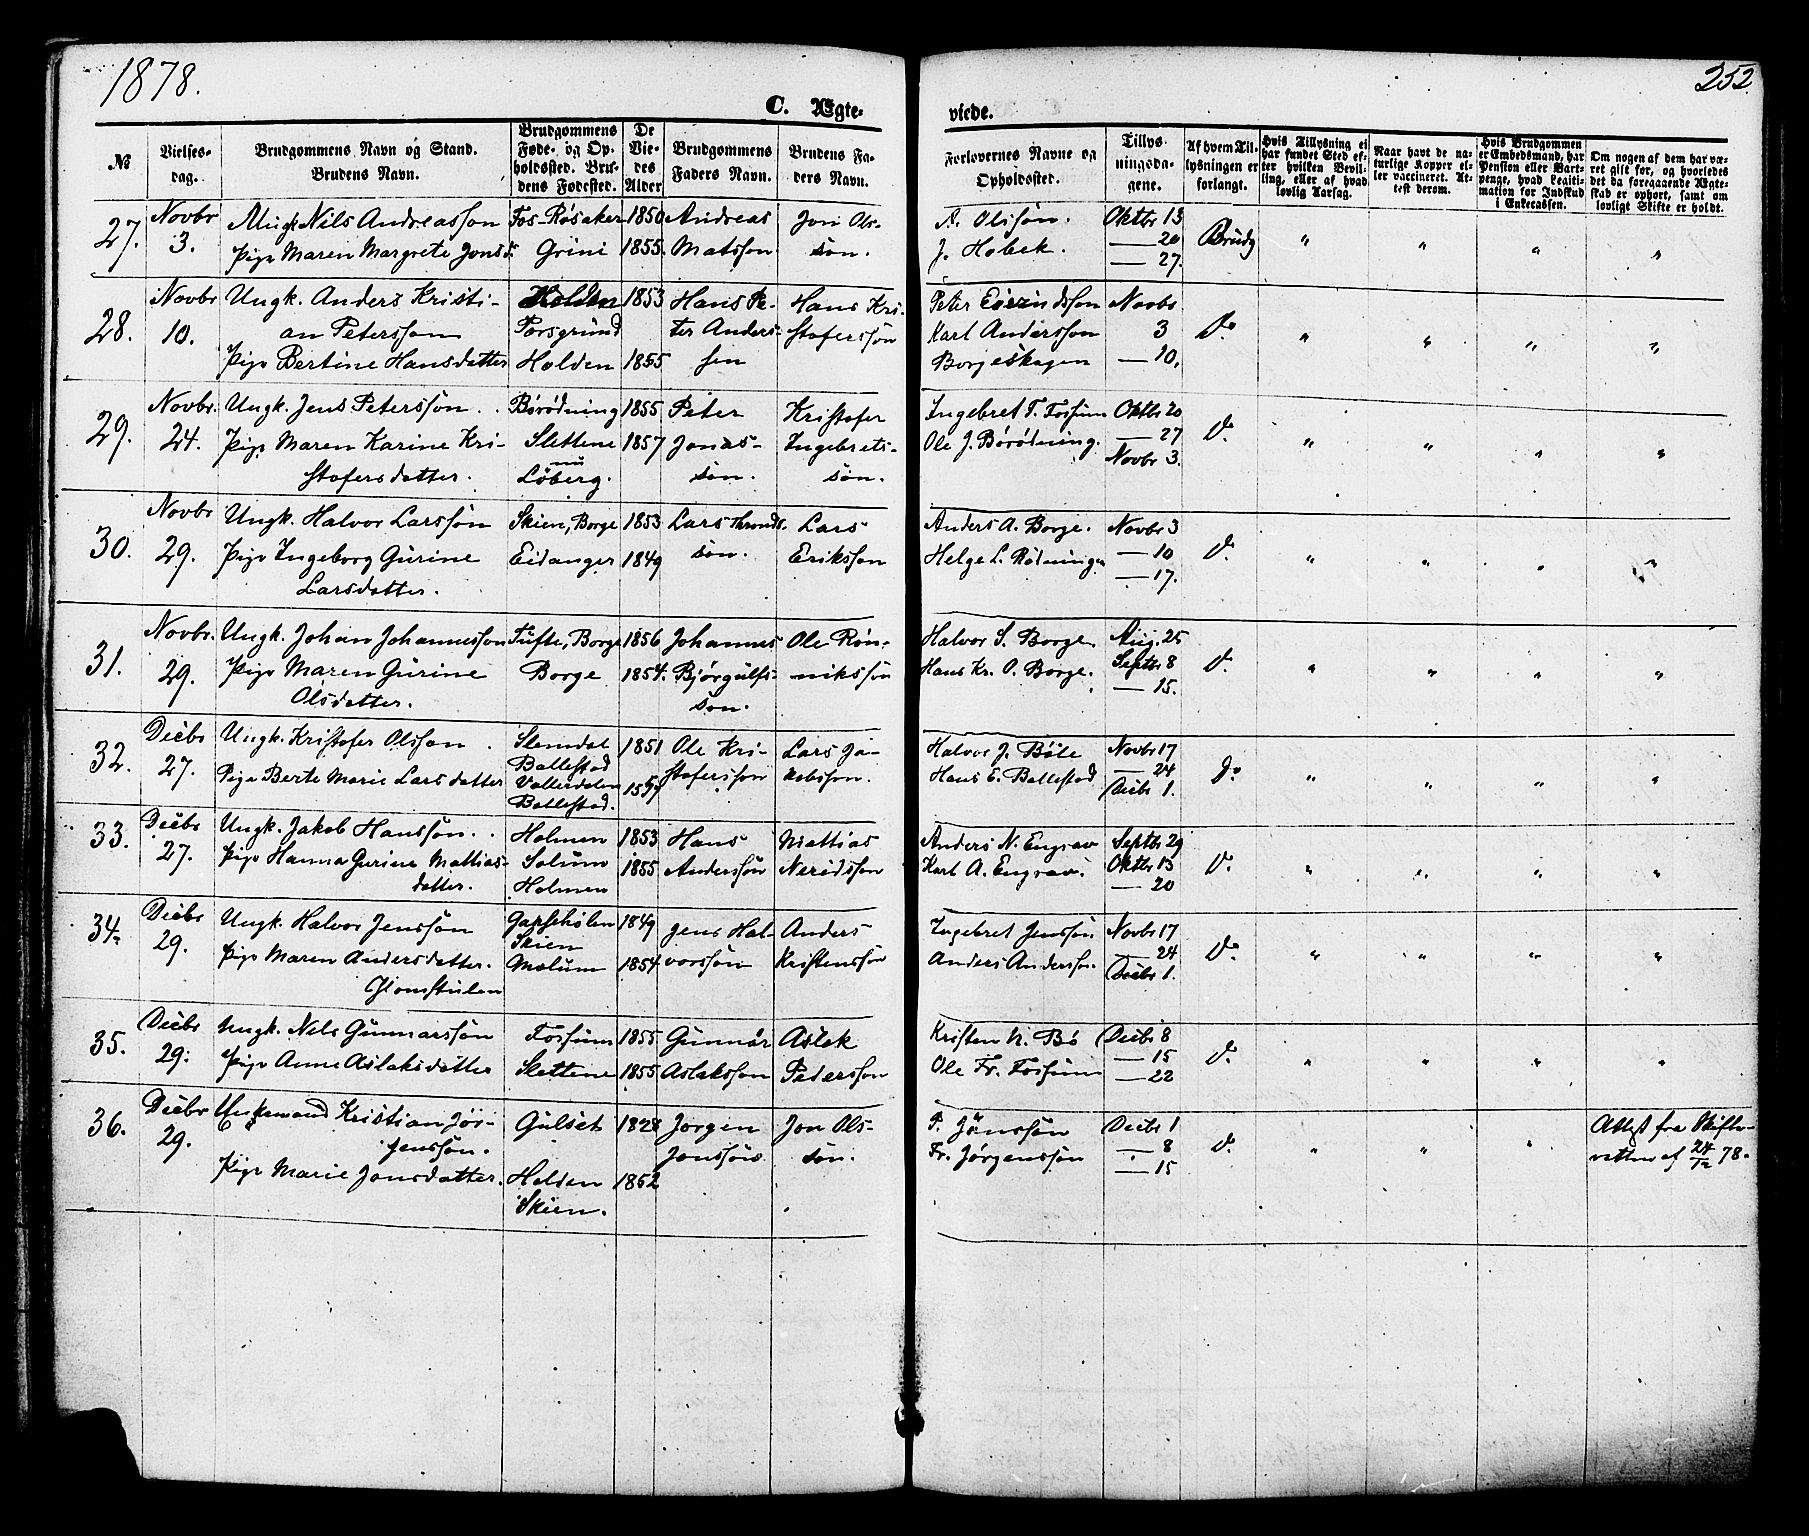 1878.
252
C. Ægte-
viede.
№
Vielses-
dag.
Brudgommens Navn og Stand.
Brudens Navn.
Brudgommens
Føde- og Op-
holdssted. Bru-
dens Fødested.
De
Vie-
des
Alder
Brudgommens
Faders Navn.
Brudens Fa-
ders Navn.
Forlovernes Navne og
Opholdssted.
Tillys-
ningsda-
gene.
Af hvem Til-
lysningen er
forlangt.
Hvis Tillysning ei
har fundet Sted ef-
ter hvilken Bevil-
ling, eller af hvad
lovlig Aarsag.
Naar havt de na-
turlige Kopper el-
ler vaccineret. At-
test derom.
Hvis Brudgommen
er Embedsmand, har
Pension eller Vart-
penge, hvad Legiti-
mation for Indskud
i Enkecassen.
Om nogen af dem har væ-
ret gift før, og hvorledes
det da foregaaende Ægte-
skab er ophørt, samt om
lovligt Skifte er holdt.
27.
Novbr
3.
Ungk Nils Andreassøn
Pige Maren Margrete Jonsd.
Fos-Røsaker
Grini
1850
1855.
Andreas
Matssøn
Jon Ols-
søn.
A. Olssøn.
J. Hobek.
Oktbr 13
— 20
— 27.
Brudg
" " " "
28.
Novbr
10.
Ungk. Anders Kristi-
an Peterssøn
Pige Bertine Hansdatter
Holden
Porsgrund
Holden
1853
1855
Hans Pe-
ter Anders-
sen
Hans Kri-
stoferssøn
Peter Eivindssøn
Karl Anderssøn
Borgeskogen
Novbr
3
— 10,
Do
" " " "
29.
Novbr.
24.
Ungk. Jens Peterssøn.
Pige Maren Karine Kri-
stofersdatter.
Børødning
Slettene
nu
Löberg.
1855
1857
Peter
Jonas-
søn.
Kristofer
Ingebrets-
søn.
Ingebret T. Fossum
Ole J. Børødning.
Oktbr 20
— 27
Novbr 3.
Do
" " " "
30.
Novbr
29.
Ungk. Halvor Larssøn
Pige Ingeborg Gurine
Larsdatter.
Skien, Borge
Eidanger
1853
1849
Lars Thronds-
søn.
Lars
Erikssøn
Anders A. Borge.
Helge L. Rødningen
Novbr 3
— 10
— 17.
Do
" " " "
31.
Novbr.
29.
Ungk. Johan Johannessøn
Pige Maren Gurine
Olsdatter.
Tufte, Borge
Borge
1856
1854.
Johannes
Bjørgulfs-
søn.
Ole Røn-
nikssøn
Halvor S. Borge.
Hans Kr. O. Borge.
Aug. 25
Septbr 8
— 15.
Do
" " " "
32.
Decbr
27.
Ungk. Kristofer Olssøn.
Pige Berte Marie Larsdatter
Slemdal
Ballestad
Vallerdalen
Ballestad.
1851
1857
Ole Kri-
stoferssøn
Lars Ja-
kobssøn.
Halvor J. Bøle
Hans E. Ballestad
Novbr 17
— 24
Decbr 1.
Do
" " " "
33.
Decbr
27.
Ungk. Jakob Hanssøn.
Pige Hanna Gurine Mattias-
datter.
Holmen
Solum
Holmen
1853
1855
Hans
Anderssøn
Mattias
Neridssøn
Anders N. Engrav
Karl A. Engrav.
Septbr 29
Oktbr 13
— 20
Do
" " " "
34.
Decbr
29.
Ungk. Halvor Jenssøn
Pige Maren Andersdatter.
Glomstulen
Skien
Melum
1849
1854.
Jens Hal-
vorssøn
Anders
Kristenssøn
Ingebret Jenssøn
Anders Anderssøn.
Novbr 17
— 24
Decbr 1.
Do
" " " "
35.
Decbr
29.
Ungk. Nels Gunnarssøn
Pige Anne Aslaksdatter
Fossum
Slettene
1855
1855
Gunnar
Aslakssøn
Aslak
Pederssøn
Kristen N. Bö
Ole Fr. Fossum
Decbr 8
— 15
— 22
Do
" " " "
36.
Decbr
29.
Enkemand Kristian Jör-
genssøn.
Pige Marie Jonsdatter.
Gulset
Holden
Skien.
1828
1852
Jörgen
Jonssøn
Jon Ols-
søn.
P. Jönssøn
Fr. Jørgenssøn
Decbr 1
— 8
— 15
Do
" " "
Attest fra Skifte-
retten af 24/12 78.